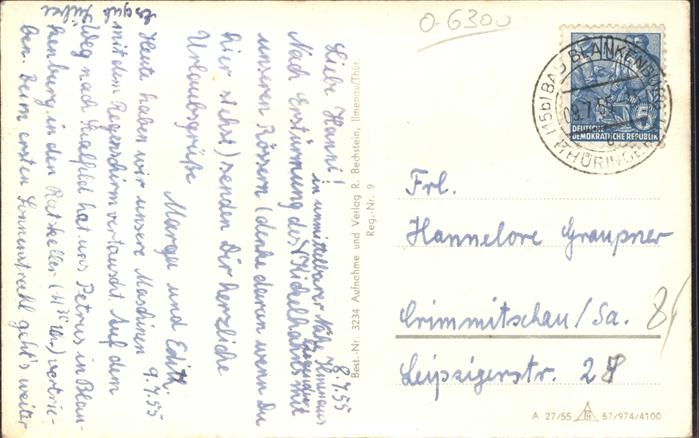 0-6300
8.7.55
Liebe Hanni!
in unmittelbarer Nähe Ilmenaus
Nach Erstürmung des Kickelhahns mit
unseren Rössern (denke daran wenn Du
hier stehst) senden Dir herzliche
Urlaubsgrüße
Margu und Edith.
9.7.55
Heute haben wir unsere Maschinen
mit dem Regenschirm vertauscht. Auf dem
Weg nach Saalfeld hat uns Petrus in Blan-
kenburg in den Ratskeller (11 35 Uhr) vertrie-
ben. Beim ersten Sonnenstrahl geht's weiter
Best.-Nr. 3234 Aufnahme und Verlag R. Bechstein, Ilmenau/Thür.
Reg.-Nr. 9
(15b) BAD BLANKENBURG
09.7.55
(THÜRINGERW
5
DEUTSCHE
DEMOKRATISCHE REPUBLIK
Frl.
Hannelore Graupner
Crimmitschau/Sa.
8/
Leipzigerstr. 28
A 27/55 57/974/4100